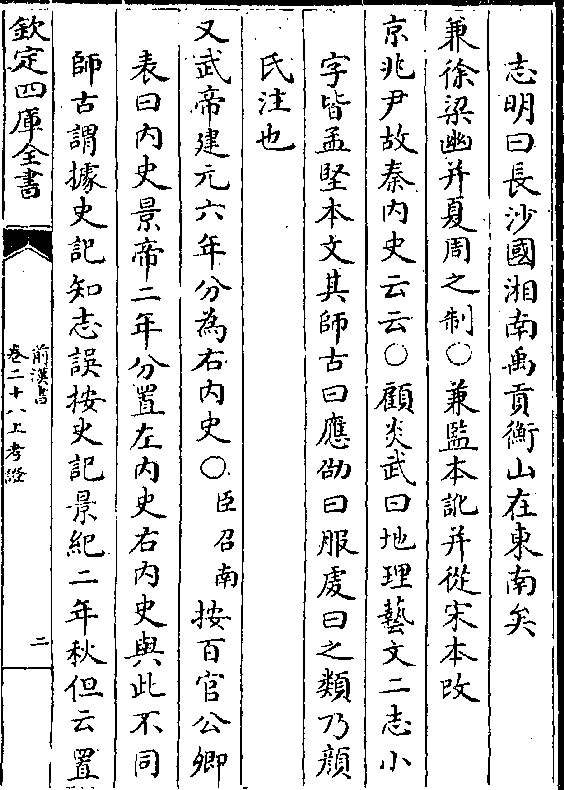 志明曰長沙國湘南禹貢衡山在東南矣
兼徐梁幽并夏周之制○兼監本訛并從宋本改
京兆尹故秦內史云云○顧炎武曰地理藝文二志小
字皆孟堅本文其師古曰應劭曰服虔曰之類乃顔
氏注也
又武帝建元六年分為右內史○臣召南按百官公卿
表曰內史景帝二年分置左內史右內史與此不同
師古謂據史記知志誤按史記景紀二年秋但云置
欽定四庫全書
前漢書
卷二十八上考證
二